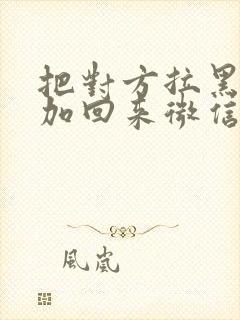 把對方拉黑
加回来微信
風嵐